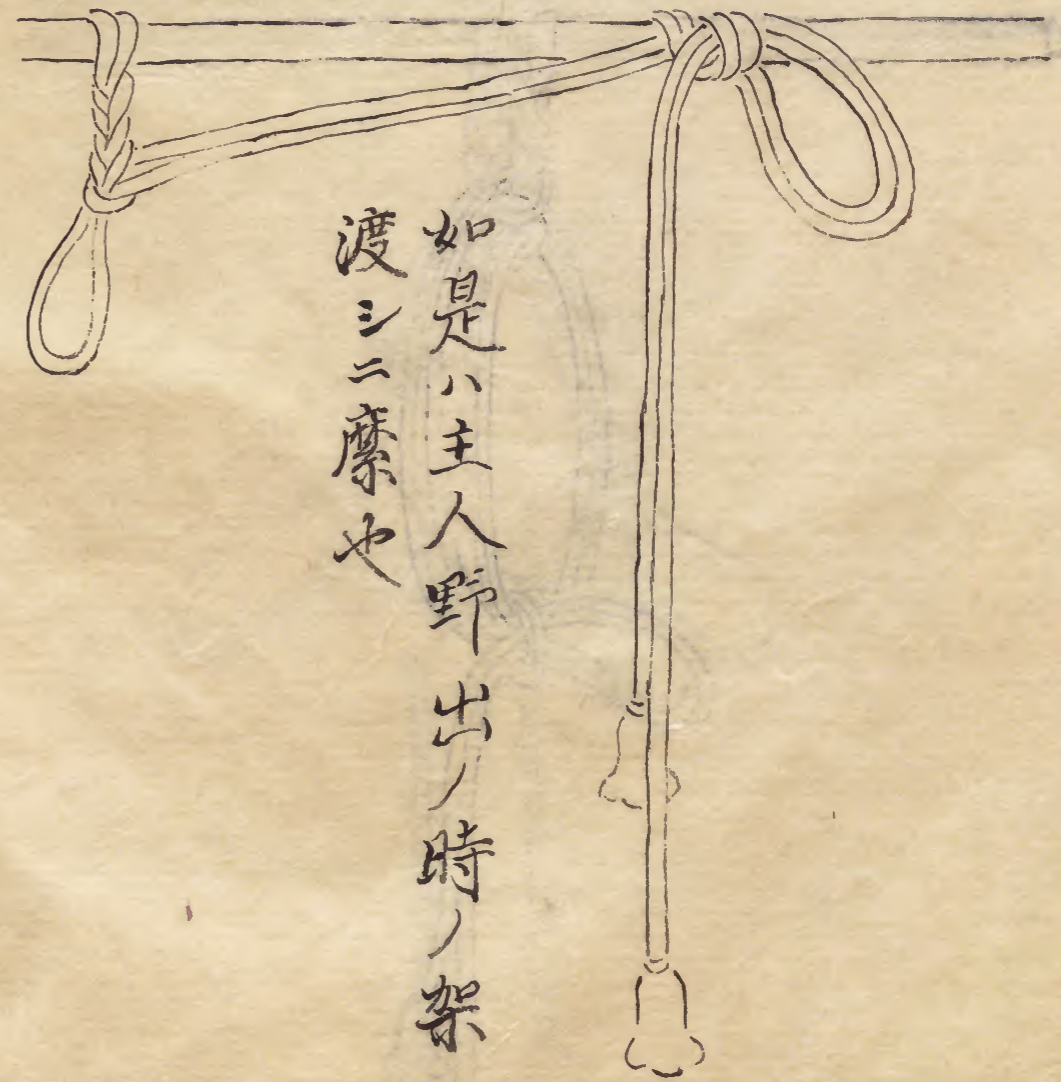 如是ハ主人野出ノ時ノ架
渡シニ縻也